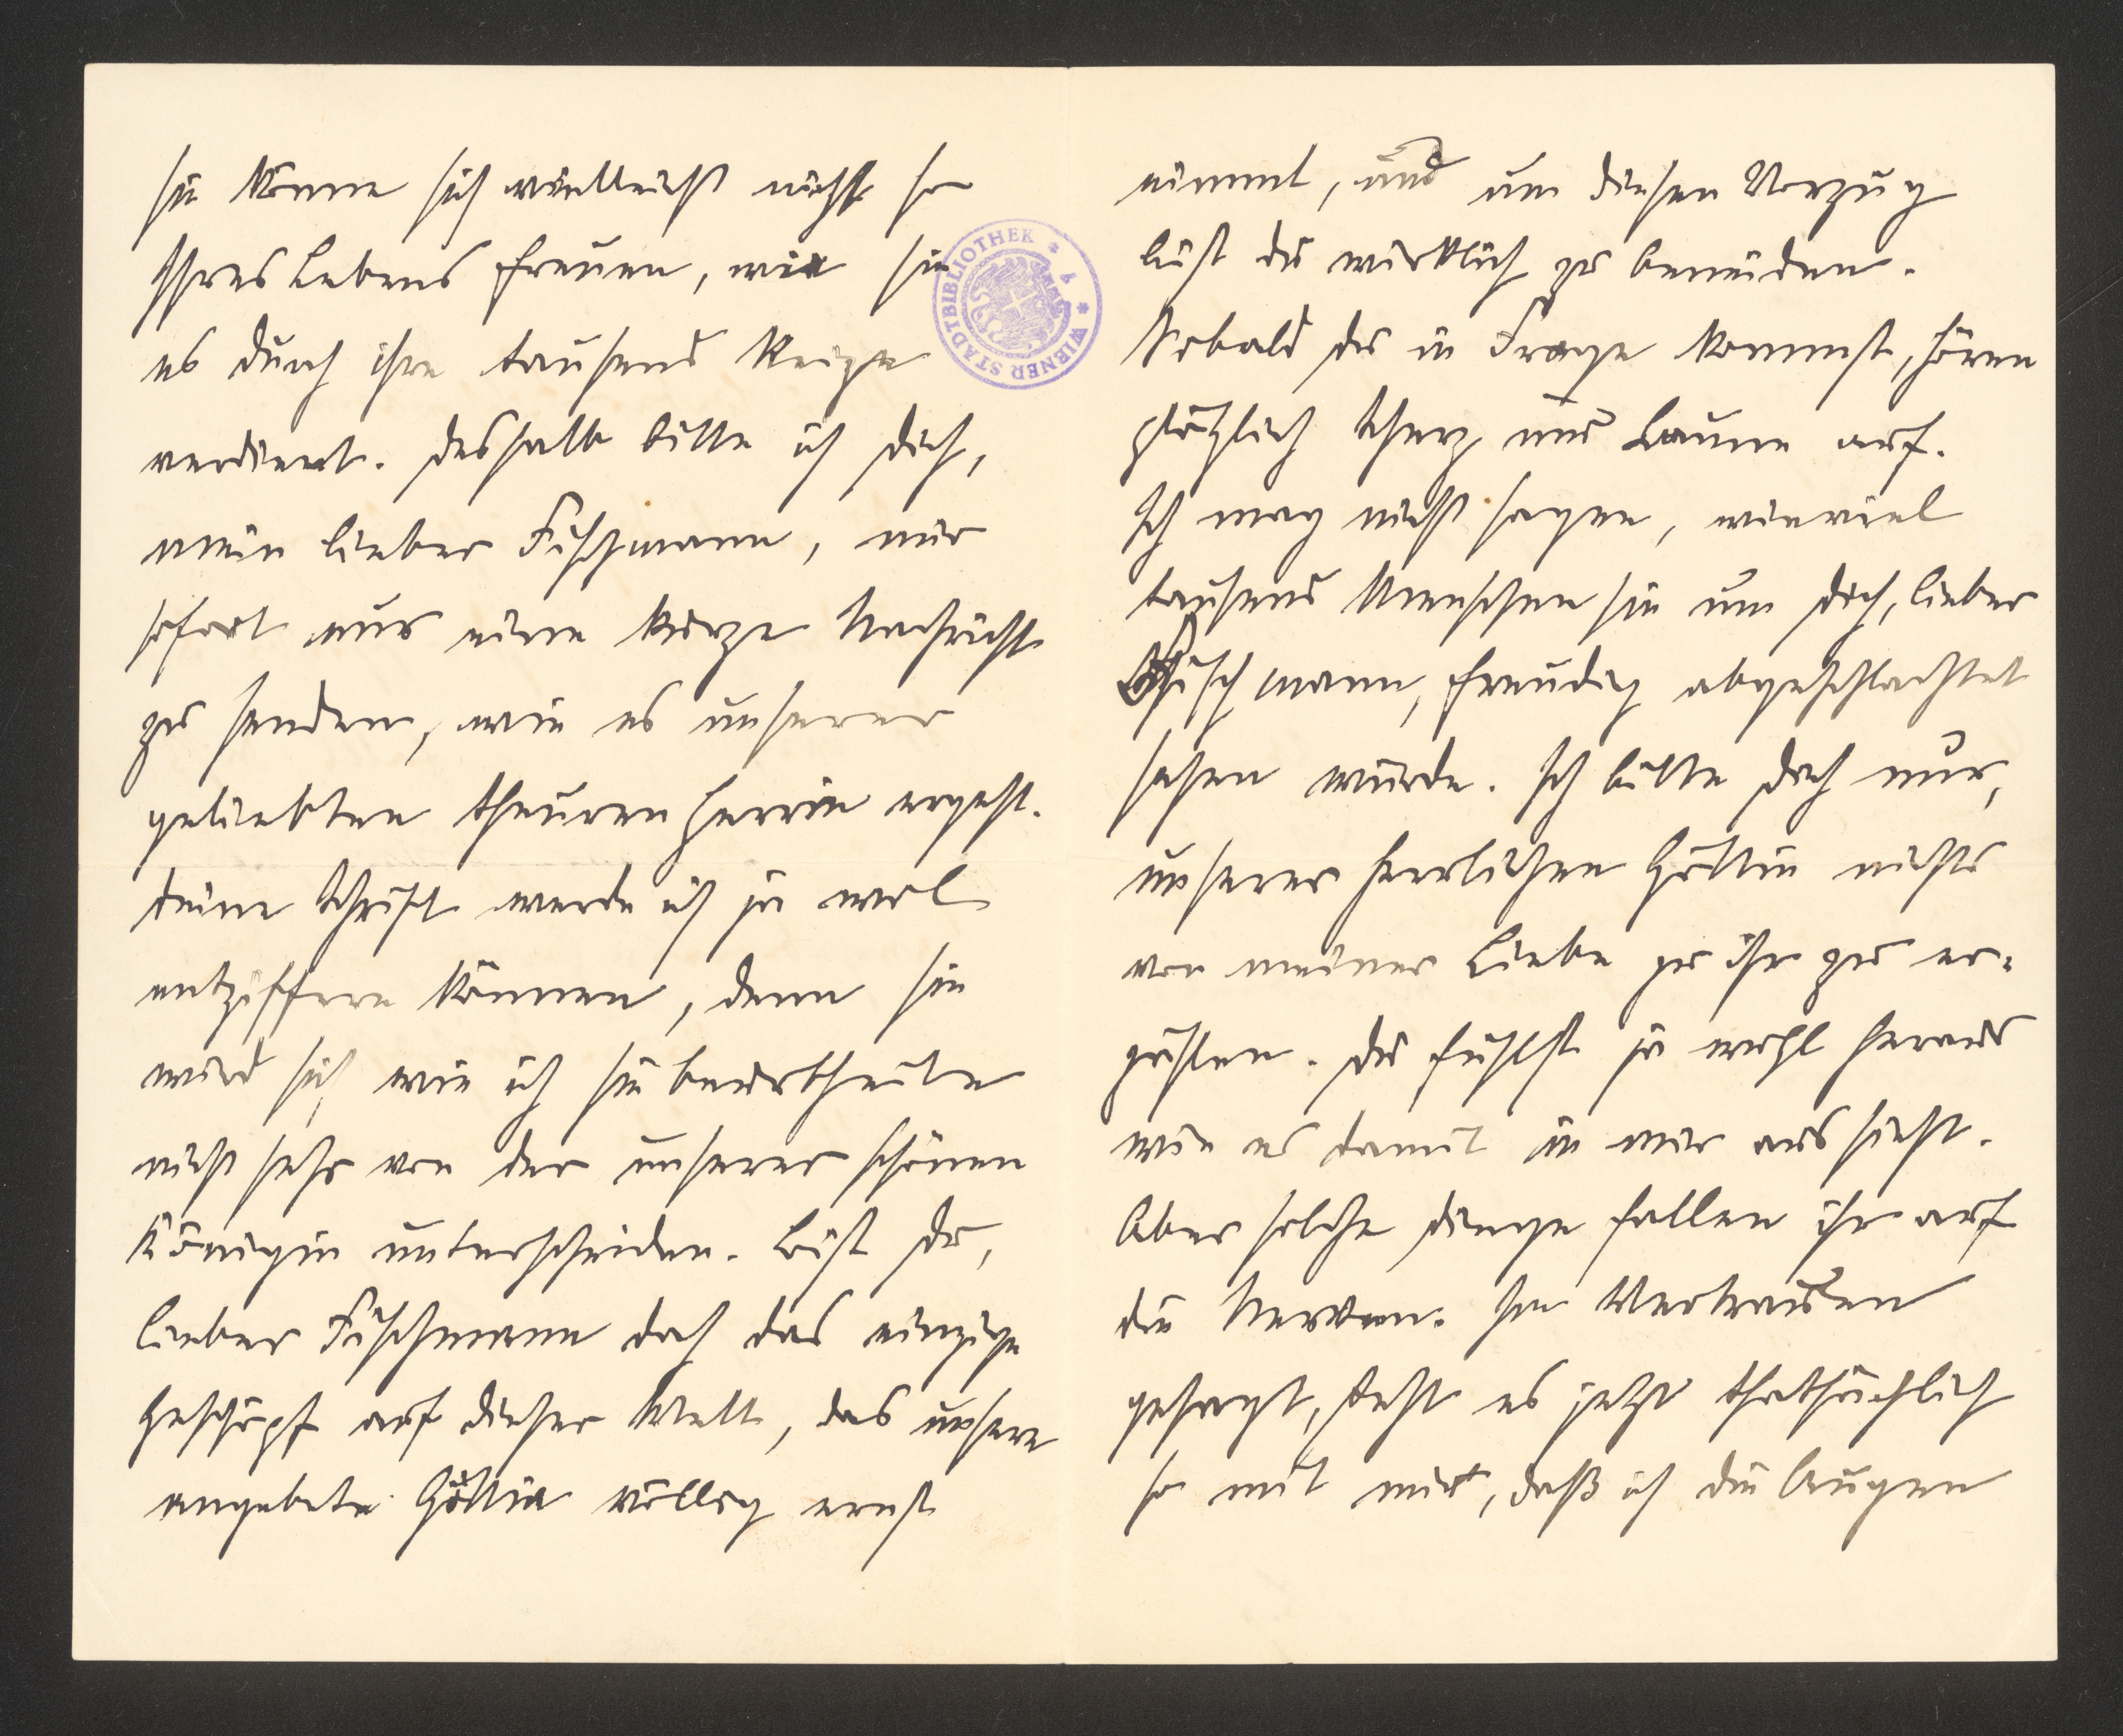 sie könne sich vielleicht nicht so
Ihres Lebens freuen, wie sie
es durch ihre tausend Reize
verdient. Deshalb bitte ich Dich,
mein lieber Fischmann, mir
sofort nur eine kurze Nachricht
zu senden, wie es unserer
geliebten theuren Herrin ergeht.
Deine Schrift werde ich ja wol
entziffern können, denn sie
wird sich wie ich sie beurtheile
nicht sehr von der unserer schönen
Königin unterscheiden. Bist Du,
lieber Fischmann doch das einzige
Geschöpf auf dieser Welt, das unsere
angebete Göttin völlig ernst
nimmt, und um diesen Vorzug
bist du wirklich zu beneiden.
Sobald Du in Frage kommst, hören
plötzlich Scherz und Laune auf.
Ich mag nicht sagen, wieviel
tausend Menschen sie um Dich, lieber
Fischmann, freudig abgeschlachtet
sehen würde. Ich bitte Dich nur,
unserer herrlichen Göttin nichts
von meiner Liebe zu ihr zu er-
zählen. Du fühlst ja wohl heraus
wie es damit in mir aussieht.
Aber solche Dinge fallen ihr auf
die Nerven. Im Vertrauen
gesagt, steht es jetzt thatsächlich
so mit mir, daß ich die Augen
WIENER STADTBIBLIOTHEK